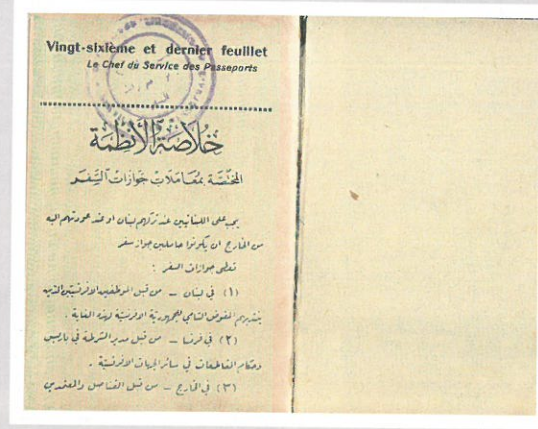 Vingt-sixième et dernier feuillet
Le Chef du Service des Passeports
خلاصة الأنظمة
المختصّة بمعَاملات جَوازات السَّفَر
يجب على اللبنانيين عند تركهم لبنان او عند عودتهم اليه
من الخارج ان يكونوا حاملين جواز سفر
تعطى جوازات السفر :
(١) في لبنان ــ من قبل الموظفين الافرنسيين الذين
ينتدبهم المفوض السامي للجمهورية الافرنسية لهذه الغاية .
(٢) في فرنسا ــ من قبل مدير الشرطة في باريس
وحكام المقاطعات في سائر الجهات الافرنسية .
(٣) في الخارج ــ من قبل القناصل والمعتمدين